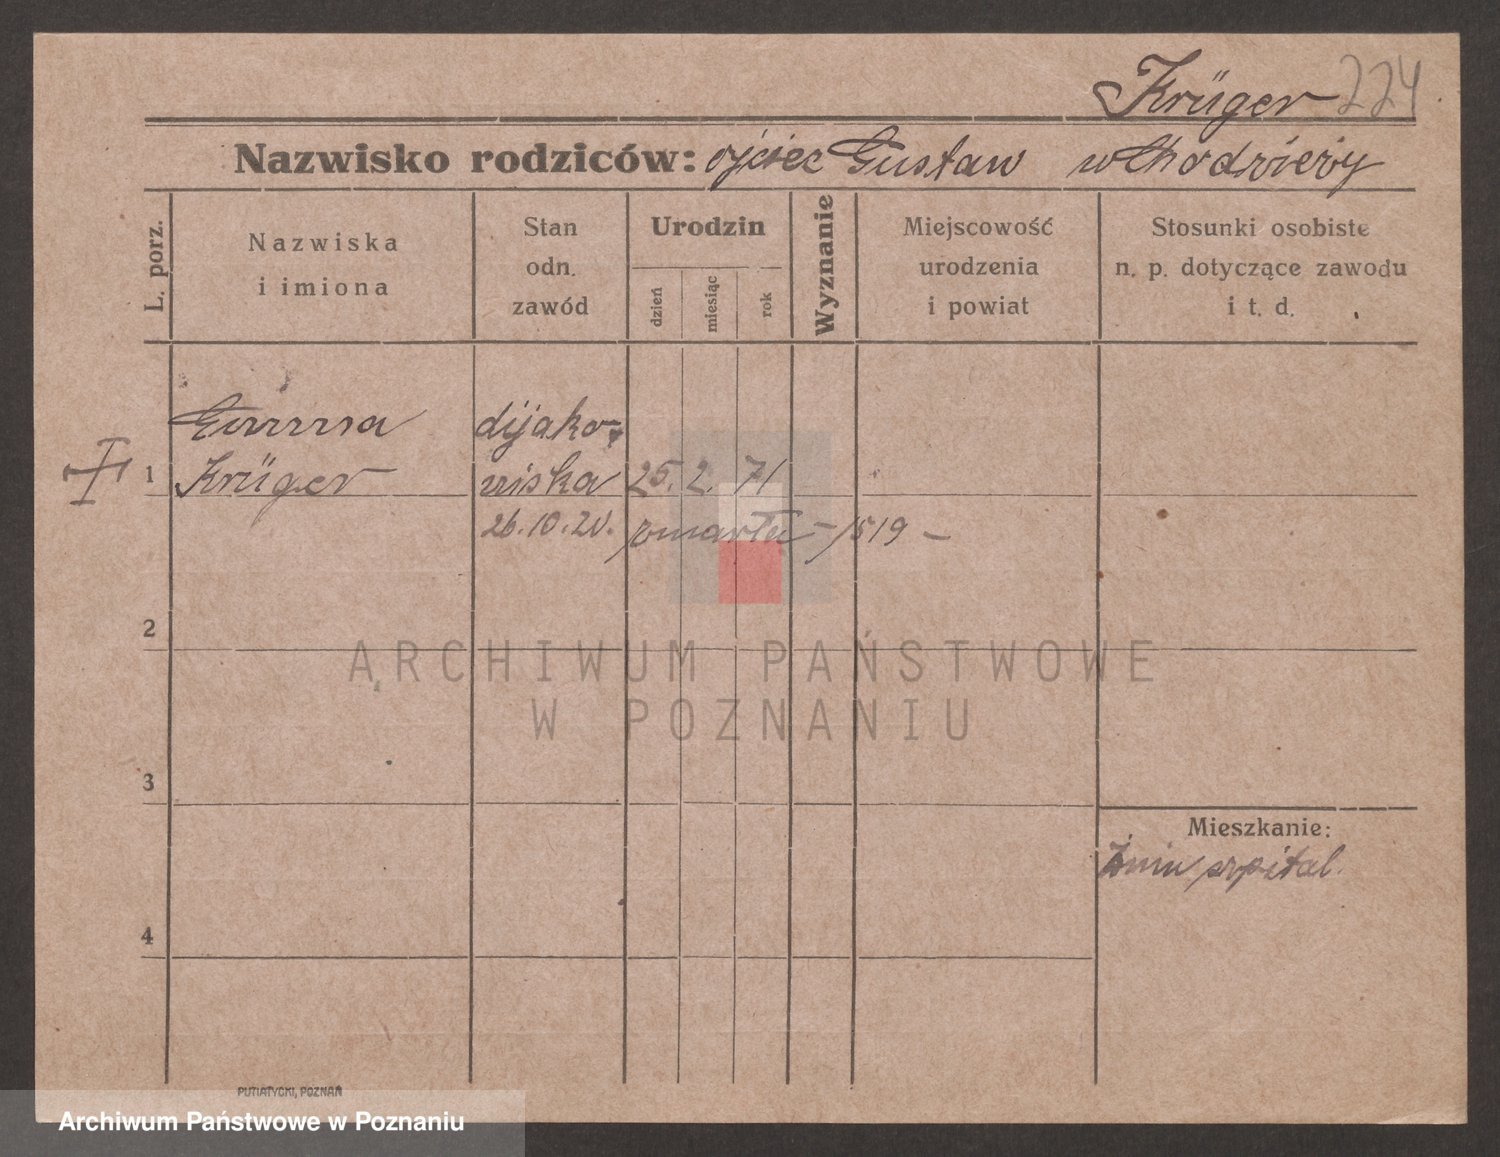 Krüger 224
Nazwisko rodziców: ojciec Gustaw w Chodzieży
L. porz.
Nazwiska
i imiona
Stan
odn.
zawód
Urodzin
dzień
miesiąc
rok
Wyznanie
Miejscowość
urodzenia
i powiat
Stosunki osobiste
n. p. dotyczące zawodu
i t. d.
Emma dijako-
1 Krüger niska 25. 2. 71
26.10.20. zmarła - 1519 -
2
ARCHIWUM PAŃSTWOWE
W POZNANIU
3
Mieszkanie:
Żnin szpital.
4
PUTIATYCKI, POZNAŃ
Archiwum Państwowe w Poznaniu